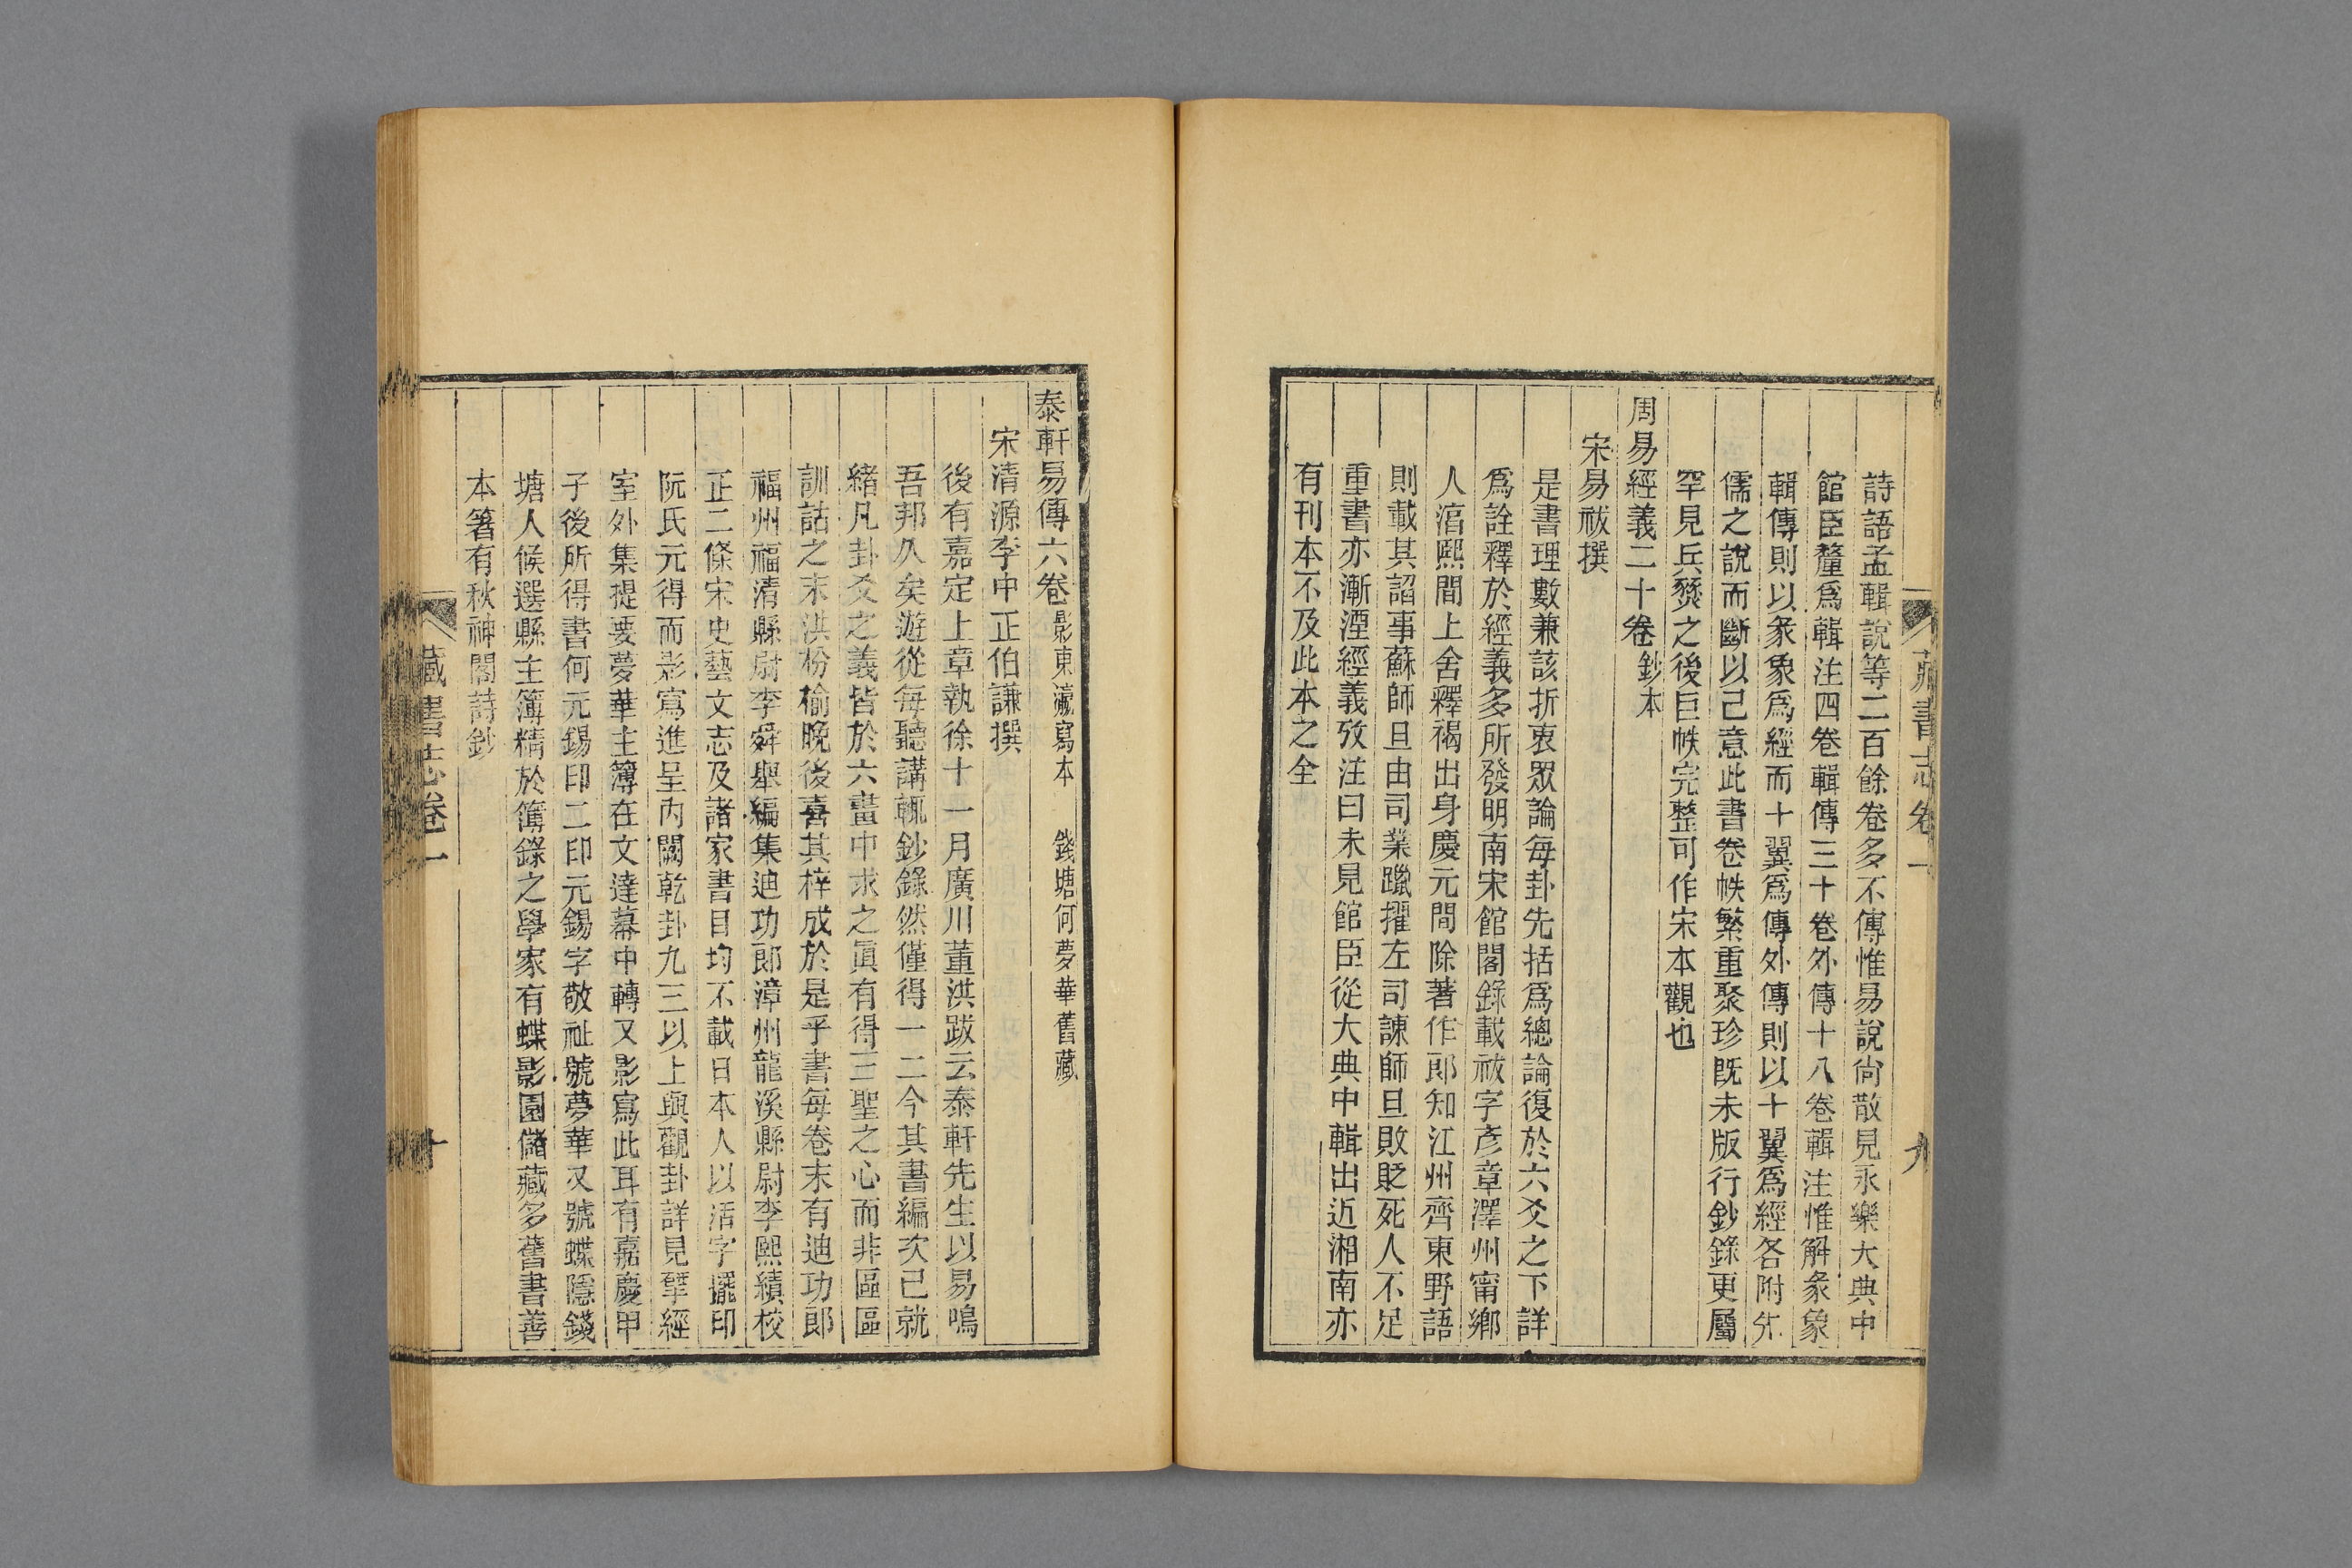 藏書志卷一
九
詩語孟輯說等二百餘卷多不傳惟易說尙散見永樂大典中
館臣釐爲輯注四卷輯傳三十卷外傳十八卷輯注惟解彖象
輯傳則以彖象爲經而十翼爲傳外傳則以十翼爲經各附先
儒之說而斷以己意此書卷帙繁重聚珍旣未版行鈔錄更屬
罕見兵燹之後巨帙完整可作宋本觀也
周易經義二十卷 鈔本
宋易祓撰
是書理數兼該折衷眾論每卦先括爲總論復於六爻之下詳
爲詮釋於經義多所發明南宋館閣錄載祓字彥章澤州甯鄉
人湻熙間上舍釋褐出身慶元間除著作郎知江州齊東野語
則載其諂事蘇師旦由司業躐擢左司諫師旦敗貶死人不足
重書亦漸湮經義攷注曰未見館臣從大典中輯出近湘南亦
有刊本不及此本之全
泰軒易傳六卷 影東瀛寫本 錢塘何夢華舊藏
宋清源李中正伯謙撰
後有嘉定上章執徐十一月廣川董洪跋云泰軒先生以易鳴
吾邦久矣遊從每聽講輒鈔錄然僅得一二今其書編次已就
緒凡卦爻之義皆於六畫中求之眞有得三聖之心而非區區
訓詁之末洪枌榆晚後喜其梓成於是乎書每卷末有迪功郎
福州福清縣尉李舜舉編集迪功郎漳州龍溪縣尉李熙績校
正二條宋史藝文志及諸家書目均不載日本人以活字擺印
阮氏元得而影寫進呈內闕乾卦九三以上與觀卦詳見揅經
室外集提要夢華主簿在文達幕中轉又影寫此耳有嘉慶甲
子後所得書何元錫印二印元錫字敬祉號夢華又號蝶隱錢
塘人候選縣主簿精於簿錄之學家有蝶影園儲藏多舊書善
本箸有秋神閣詩鈔
藏書志卷一
十